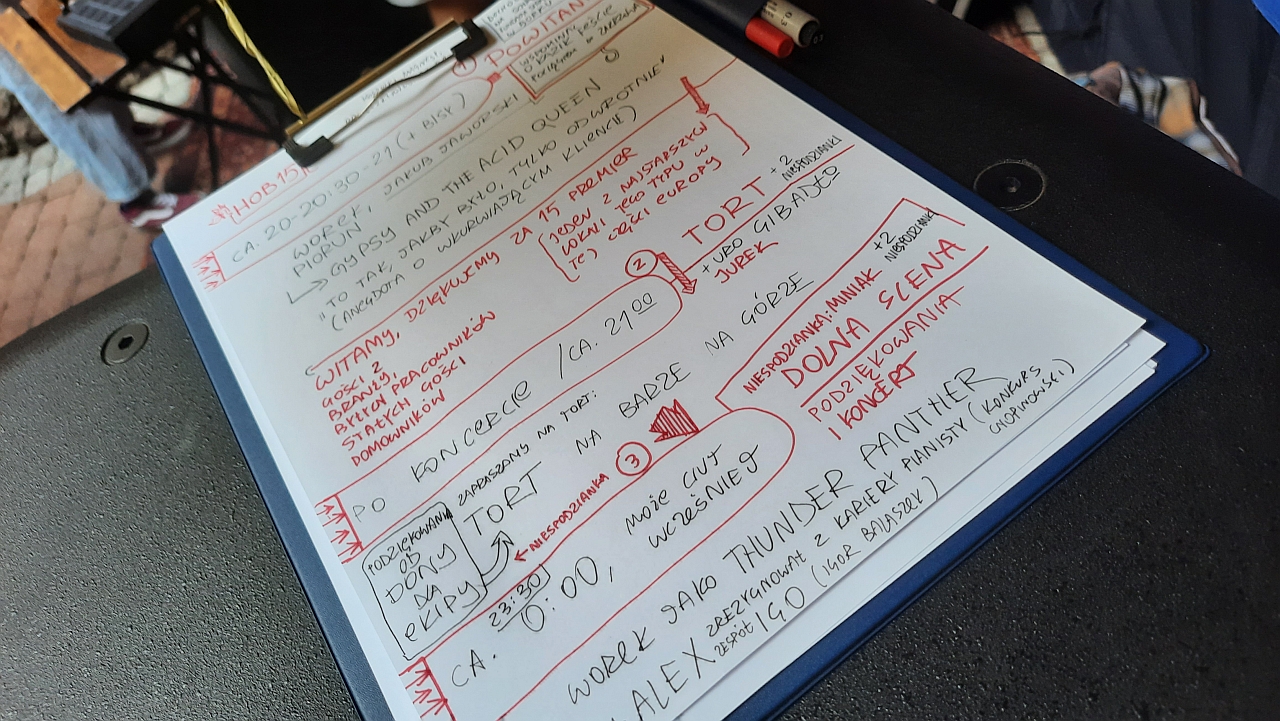 HOB 15
① POWITANI
WSPOMNIJ
CA. 20-20:30 - 21 (+ BISY)
WOREK, JAKUB JAWORSKI
PIORUN
→ GYPSY AND THE ACID QUEEN
"TO TAK, JAKBY BYŁO, TYLKO ODWROTNIE"
(ANEGDOTA O WKURWIAJĄCYM KLIENCIE)
WITAMY, DZIĘKUJEMY ZA 15 PREMIER
GOŚCI Z
BRANŻY,
BYŁYCH PRACOWNIKÓW
STAŁYCH GOŚCI
DOMOWNIKÓW
[JEDEN Z NAJSTARSZYCH
LOKALI TEGO TYPU W
TEJ CZĘŚCI EUROPY]
②
TORT
+2
NIESPODZIANKI
+ URO GIBAŁTO
JUREK
PO KONCERCIE / CA. 21 00
ZAPRASZAMY NA TORT:
TORT NA BARZE NA GÓRZE
PODZIĘKOWANIA
OD
DONY
DLA
EKIPY
← NIESPODZIANKA
③
NIESPODZIANKA: MINIAK
+2
NIESPODZIANKI
DOLNA SCENA
PODZIĘKOWANIA
I KONCERT
23:30
CA. 0:00, MOŻE CIUT
WCZEŚNIEJ
WOREK JAKO THUNDER PANTHER
ALEX ZREZYGNOWAŁ Z KARIERY PIANISTY (KONKURS
CHOPINOWSKI)
ZESPÓŁ IGO (IGOR BALASZEK)